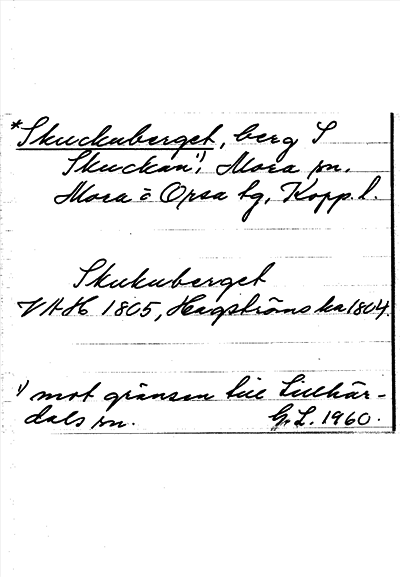 *Skuckuberget, berg S
Skuckan¹), Mora sn.
Mora o Orsa tg, Kopp. l.
Skukuberget
VAH 1805, Hagströms ka 1804.
¹) mot gränsen till Lillhär-
dals sn. G.L. 1960.